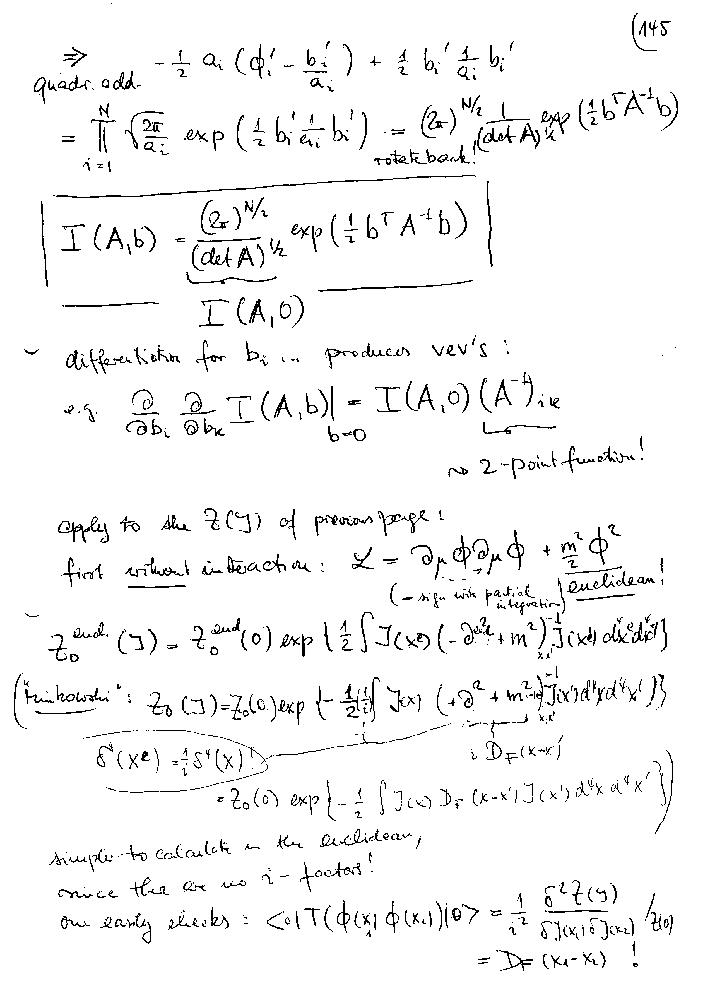 (145
⇒ quadr. add. -½ a_i (ϕ_i' - b_i'/a_i) + ½ b_i' 1/a_i b_i'
= ∏_{i=1}^N √(2π/a_i) exp(½ b_i' 1/a_i b_i') = (2π)^{N/2} 1/(det A)^{1/2} exp(½ b^T A^{-1} b)
rotate back!
I(A,b) = (2π)^{N/2}/(det A)^{1/2} exp(½ b^T A^{-1} b)
I(A,0)
differentiation for b_i .. produces vev's :
e.g. ∂/∂b_i ∂/∂b_k I(A,b)|_{b=0} = I(A,0) (A^{-1})_{ik}
⇝ 2-point function!
apply to the Z(J) of previous page :
first without interaction : ℒ = ∂_μ ϕ ∂_μ ϕ + m²/2 ϕ²
(- sign with partial integration) euclidean!
Z_0^{eucl.}(J) = Z_0^{eucl}(0) exp{½ ∫ J(x^e) (-∂^{e2} + m²)^{-1}_{xx'} J(x'^e) d^4x^e d^4x'^e}
("Minkowski": Z_0(J) = Z_0(0) exp{-½ ∫ J(x) (+∂² + m²)^{-1}_{x,x'} J(x') d^4x d^4x'}
δ^4(x^e) = 1/i δ^4(x)! i D_F(x-x')
= Z_0(0) exp{-½ ∫ J(x) D_F(x-x') J(x') d^4x d^4x'})
simpler to calculate in the euclidean,
since there are no i-factors!
one easily checks : <0|T(ϕ(x_1) ϕ(x_2))|0> = 1/i² δ²Z(J)/δJ(x_1)δJ(x_2) /Z(0)
= D_F(x_1-x_2) !